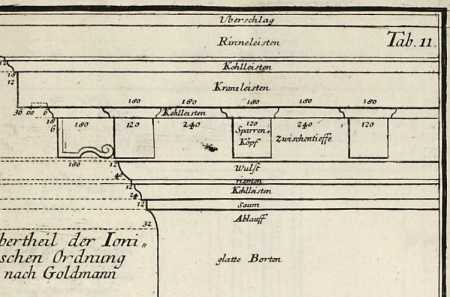 Uberschlag
Rinneleisten
Tab. 11.
Kehlleisten
Kranzleisten
180 180 180 180 180
Kehlleisten
180 120 240 120 240 120
Sparren-
Kopf
Zwischentieffe
180
Wulst
riemen
Kehlleisten
Saum
Ablauff
32
bertheil der Ioni„
schen Ordnung
nach Goldmann
glatte Borten